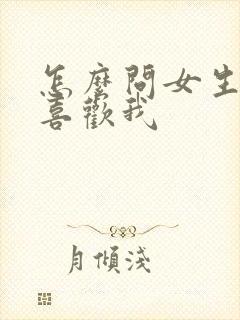 怎麼問女生
喜歡我
月傾淺